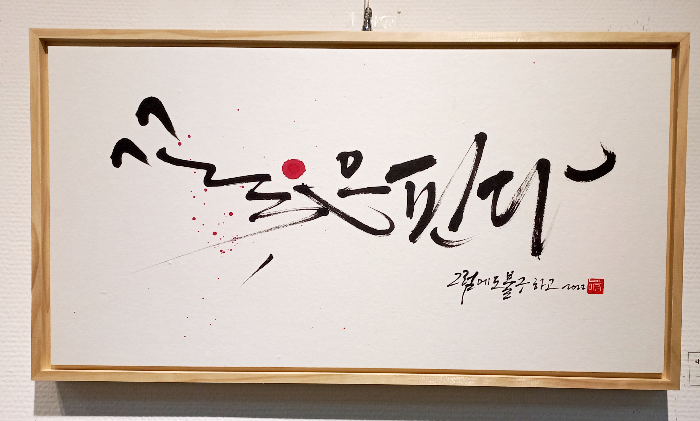 꽃은 핀다
그럼에도 불구하고 2022